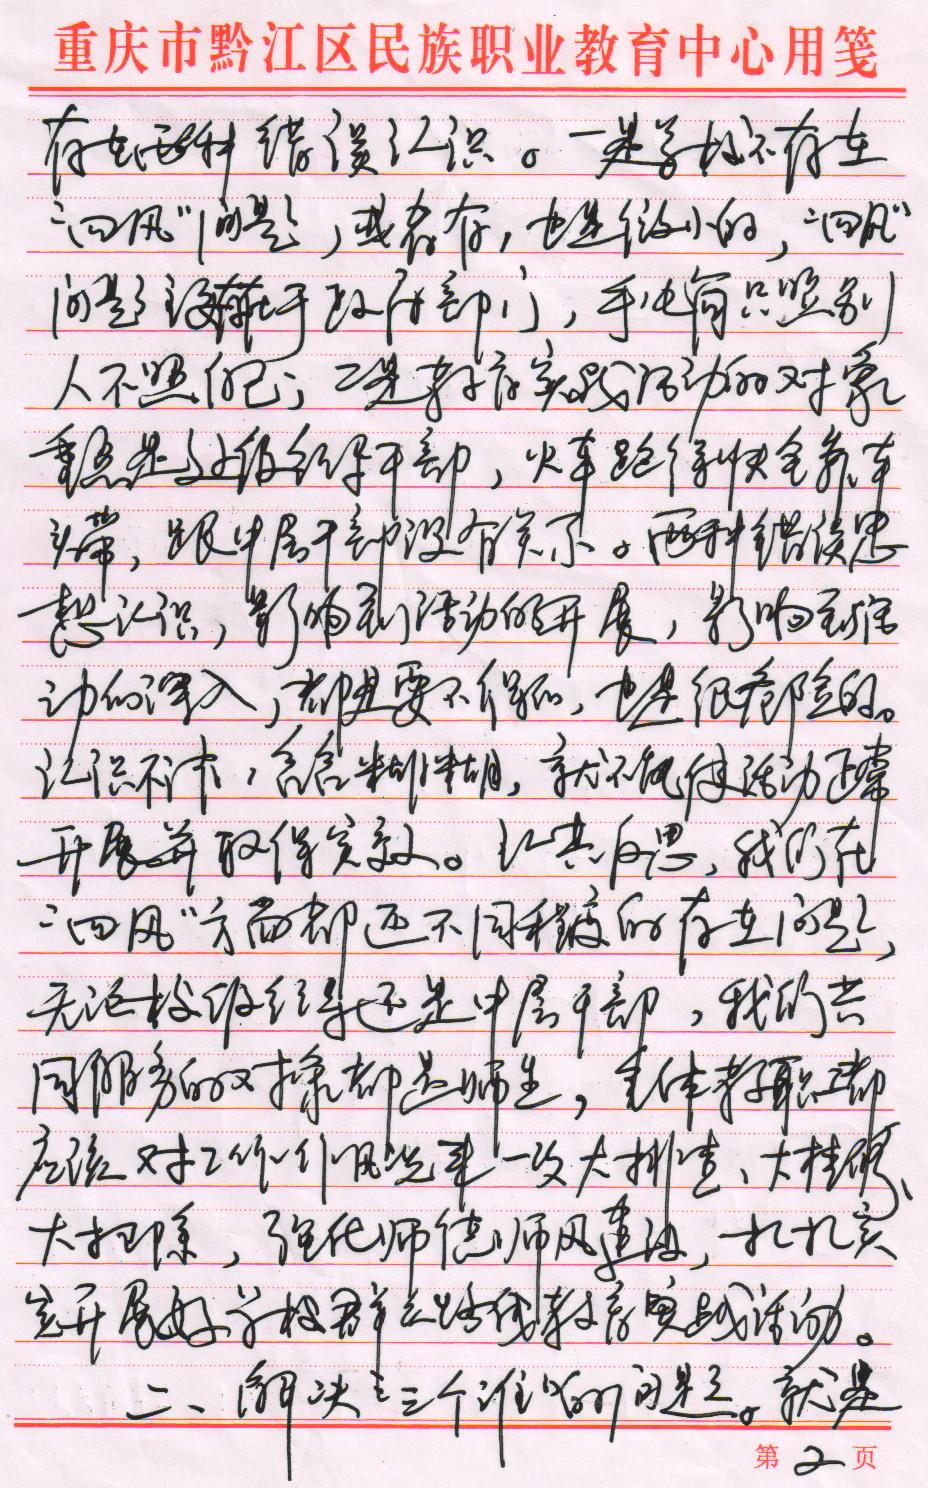 重庆市黔江区民族职业教育中心用笺
存在两种错误认识。一是学校不存在
“四风”问题，或者存，也是很小的，“四风”
问题主要在于政府部门，手电筒只照别
人不照自己；二是教育实践活动的对象
重点是校级领导干部，火车跑得快全靠车
头带，跟中层干部没有关系。两种错误思
想认识，影响到活动的开展，影响到活
动的深入，都是要不得的，也是很危险的。
认识不清，含含糊糊，就不能使活动正常
开展并取得实效。认真反思，我们在
“四风”方面都还不同程度的存在问题，
无论校级领导还是中层干部，我们共
同服务的对象都是师生，全体教职工都
应该对工作作风进来一次大排查、大检修、
大扫除，强化师德师风建设，扎扎实
实开展好学校群众路线教育实践活动。
二、解决三个谁的问题。就是
第2页